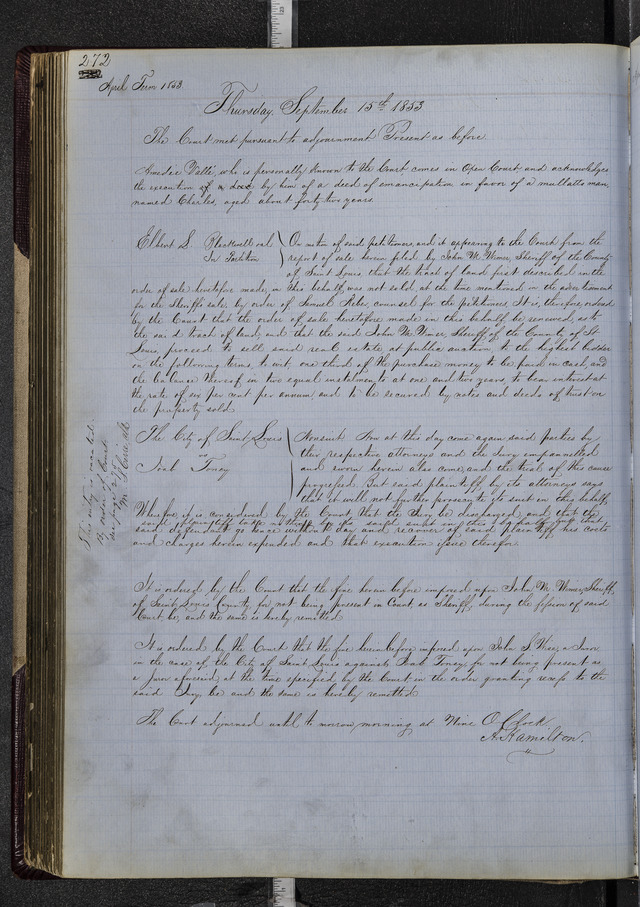 272
April Term 1853
Thursday, September 15th 1853
The Court met pursuant to adjournment Present as before.
Amedée Vallé, who is personally known to the Court comes in Open Court, and acknowledges
the execution by him of a deed of emancipation in favor of a mullatto man,
named Charles, aged about forty two years.
Elbert S. Blackwell et al
In Partition
On motion of said petitioners, and it appearing to the Court from the
report of sale herein filed by John M. Wimer, Sheriff of the County
of Saint Louis that the tract of land first described in the
order of sale heretofore made, in this behalf, was not sold, at the time mentioned in the advertisement
for the Sheriffs sale, by order of Samuel Reber, counsel for the petitioners, It is, therefore, ordered
by the Court that the order of sale heretofore made in this behalf be renewed, as to
the said tract of land, and that the said John M. Wimer, Sheriff of the County of St
Louis, proceed to sell said real estate at public auction to the highest bidder
on the following terms, to wit; one third of the purchase money to be paid in cash, and
the balance thereof in two equal instalments at one and two years, to bear interest at
the rate of six per cent per annum, and to be secured by notes and deeds of trust on
the property sold.
The City of Saint Louis
vs
Noah
Nonsuit. Now at this day come again said parties by
their respective attorneys and the Jury empannelled
and sworn herein also come, and the trial of this cause
progressed. But said plaintiff by its attorneys says
that it will not further prosecute its suit in this behalf,
Wherefore, it is considered by the Court that the Jury be discharged, and that the
said plaintiff take nothing by its suit in this behalf, but that
said defendant go hence without day and recover of said plaintiff his costs
and charges herein expended and that execution issue therefor.
This entry is
by order of Court
It is ordered by the Court that the fine herein before imposed upon John M Wimer, Sheriff,
of Saint Louis County, for not being present in Court, as Sheriff, during the session of said
Court be, and the same is hereby remitted.
It is ordered by the Court that the fine hereinbefore imposed upon John S. a Juror
in the case of the City of Saint Louis against Noah for not being present as
a Juror aforesaid, at the time specified by the Court in the order granting recess to the
said Jury be and the same is hereby remitted
The Court adjourned until to morrow morning at Nine O,Clock
A. Hamilton.